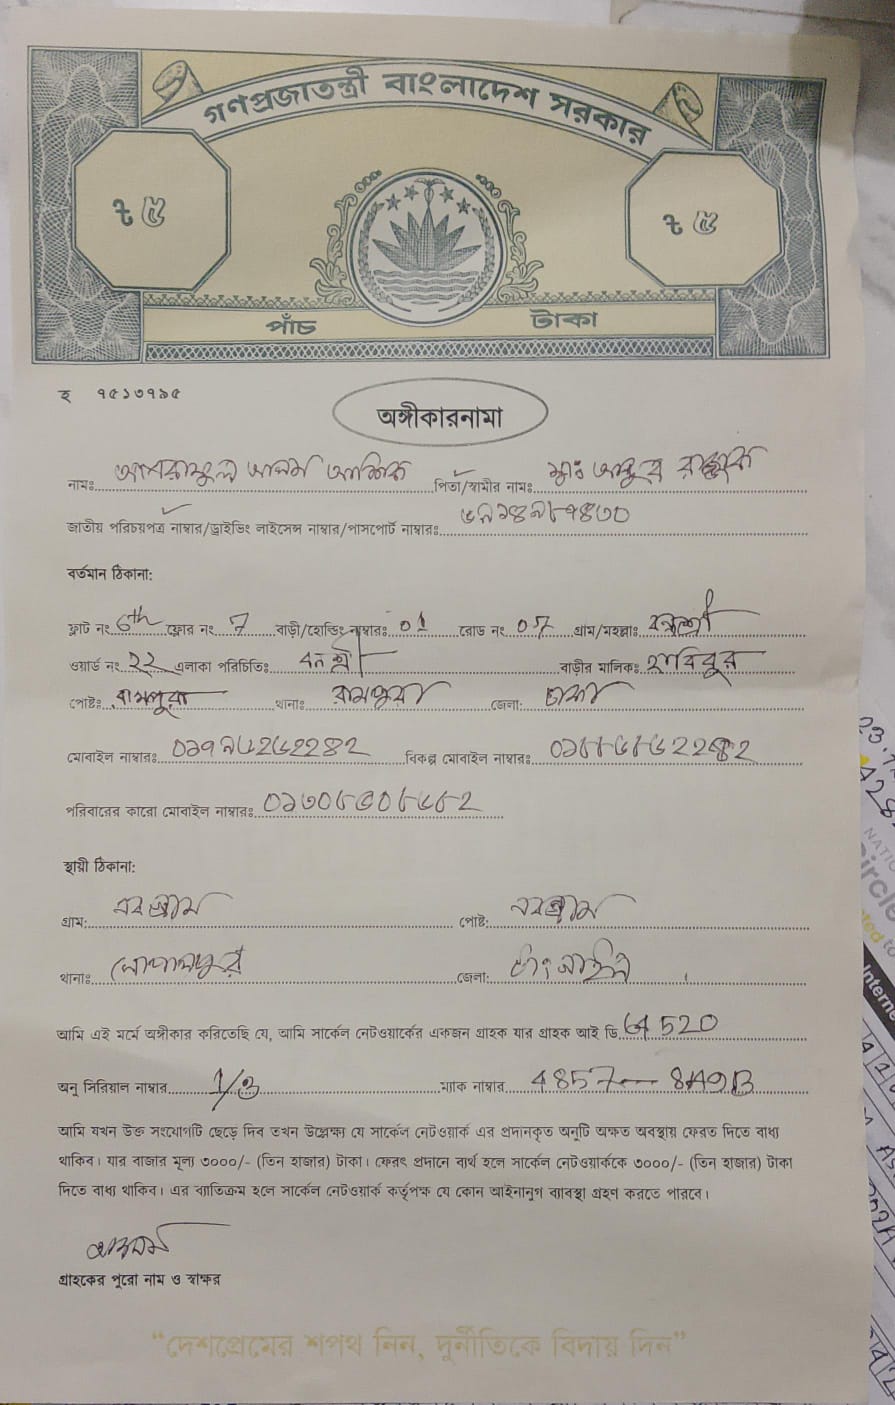 গণপ্রজাতন্ত্রী বাংলাদেশ সরকার
৳ ৫ ৳ ৫
পাঁচ টাকা
হ ৭৫১৩৭৯৫
অঙ্গীকারনামা
নামঃ আশরাফুল আলম আশিক পিতা/স্বামীর নামঃ মোঃ আব্দুর রাজ্জাক
জাতীয় পরিচয়পত্র নাম্বার/ড্রাইভিং লাইসেন্স নাম্বার/পাসপোর্ট নাম্বারঃ
বর্তমান ঠিকানা:
ফ্লাট নং 6th ফ্লোর নং 7 বাড়ী/হোল্ডিং নাম্বারঃ 01 রোড নং 07 গ্রাম/মহল্লাঃ বনশ্রী
ওয়ার্ড নং ২২ এলাকা পরিচিতিঃ বনশ্রী বাড়ীর মালিকঃ হাবিবুর
পোষ্টঃ রামপুরা থানাঃ রামপুরা জেলা: ঢাকা
মোবাইল নাম্বারঃ বিকল্প মোবাইল নাম্বারঃ
পরিবারের কারো মোবাইল নাম্বারঃ
স্থায়ী ঠিকানা:
গ্রাম: নবগ্রাম পোষ্ট: নবগ্রাম
থানাঃ গোপালপুর জেলা: টাংগাইল
আমি এই মর্মে অঙ্গীকার করিতেছি যে, আমি সার্কেল নেটওয়ার্কের একজন গ্রাহক যার গ্রাহক আই ডি 520
অনু সিরিয়াল নাম্বার 1/3 ম্যাক নাম্বার 4857 — 8A9B
আমি যখন উক্ত সংযোগটি ছেড়ে দিব তখন উল্লেক্ষ্য যে সার্কেল নেটওয়ার্ক এর প্রদানকৃত অনুটি অক্ষত অবস্থায় ফেরত দিতে বাধ্য
থাকিব। যার বাজার মূল্য ৩০০০/- (তিন হাজার) টাকা। ফেরৎ প্রদানে ব্যর্থ হলে সার্কেল নেটওয়ার্ককে ৩০০০/- (তিন হাজার) টাকা
দিতে বাধ্য থাকিব। এর ব্যতিক্রম হলে সার্কেল নেটওয়ার্ক কর্তৃপক্ষ যে কোন আইনানুগ ব্যবস্থা গ্রহণ করতে পারবে।
গ্রাহকের পুরো নাম ও স্বাক্ষর
"দেশপ্রেমের শপথ নিন, দুর্নীতিকে বিদায় দিন"